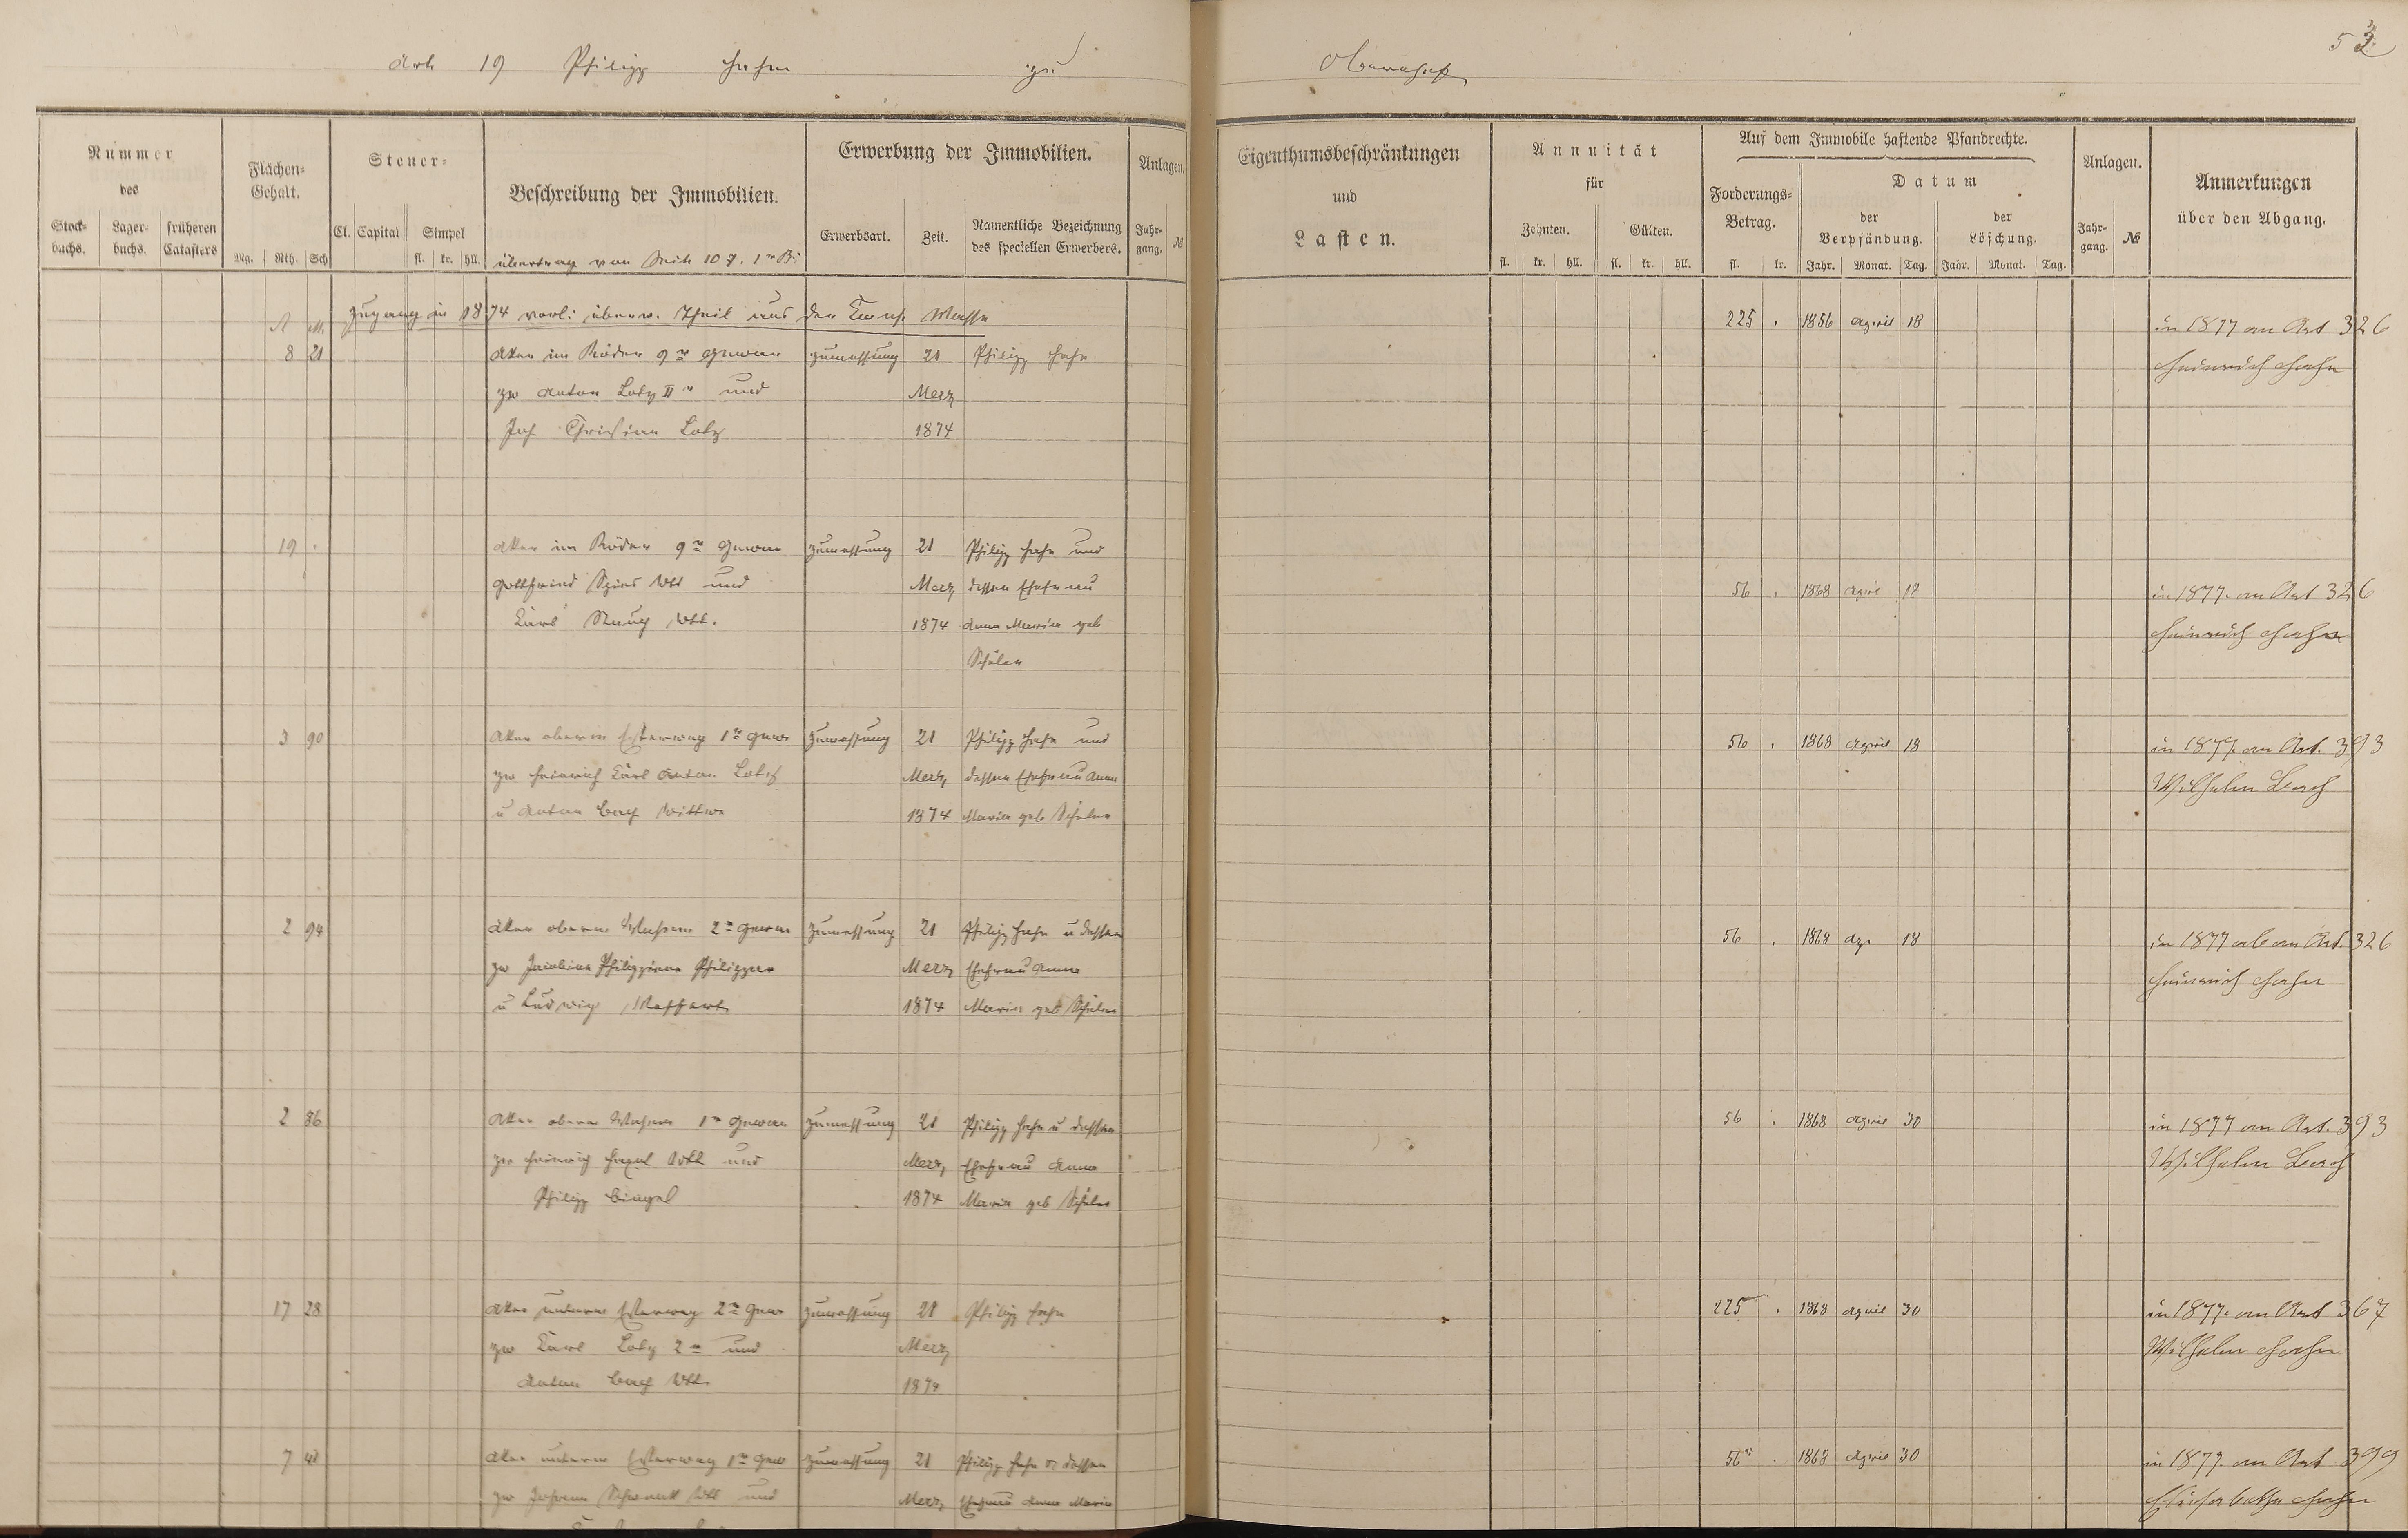 53
Art 19 Philipp Hahn zu
Nummer
des
Stock-
buchs.
Lager-
buchs.
früheren
Catasters
Flächen-
Gehalt.
Mg. Rth. Sch
Steuer-
Cl. Capital Simpel
fl. kr. hll.
Beschreibung der Immobilien.
Übertrag von Seite 107. 1r Bd
Erwerbung der Immobilien.
Erwerbsart. Zeit.
Namentliche Bezeichnung
des speciellen Erwerbers.
Anlagen.
Jahr-
gang. №
Eigenthumsbeschränkungen
und
Lasten.
Annuität
für
Zehnten. Gülten.
fl. kr. hll. fl. kr. hll.
Auf dem Immobile haftende Pfandrechte.
Forderungs-
Betrag.
fl. kr.
Datum
der
Verpfändung.
der
Löschung.
Jahr. Monat. Tag. Jahr. Monat. Tag.
Anlagen.
Jahr-
gang. №
Anmerkungen
über den Abgang.
Zugang in 1874 Theil aus der Masse
225 . 1856 April 18 in 1877 an Art 326
8 21 Aker im Röder 9te Gewan Zumessung 21 Philipp Hahn Heinrich Hahn
zw Anton Lotz IIr und Merz
Joh Christian Lotz 1874
19 . Aker im Röder 9te Gewan Zumessung 21 Philipp Hahn und
Gottfried Spies Wtt und Merz dessen Ehefrau 56 . 1868 April 18 in 1877. an Art 326
Karl Wtt. 1874 Anna Maria geb Heinrich Hahn
Schüler
3 90 Aker oberm 1te Gew Zumessung 21 Philipp Hahn und 56 . 1868 April 18 in 1877. an Art. 393
zw Heinrich Karl Anton Lotz Merz dessen Ehefrau Anna Wilhelm
u Anton Bach Wittwe 1874 Maria geb Schüler
2 94 Aker oberm 2te Gewan Zumessung 21 Philipp Hahn u dessen 56 . 1868 Ap. 18 in 1877 ab an Art. 326
zw Philippine Merz Ehefrau Anna Heinrich Hahn
u Ludwig 1874 Maria geb Schüler
2 86 Aker oberm 1te Gewan Zumessung 21 Philipp Hahn u dessen 56 . 1868 April 30 in 1877 an Art. 393
zw Heinrich Wtt und Merz Ehefrau Anna Wilhelm
Philipp Bingel 1874 Maria geb Schüler
17 28 Aker unterm 2te Gew Zumessung 21 Philipp Hahn 225 . 1868 April 30 in 1877. an Art 367
zw Karl Lotz 2r und Merz Wilhelm Hahn
Anton Bach Wtt. 1874
7 Aker unterm 1te Gew Zumessung 21 Philipp Hahn u dessen 56 . 1868 April 30 in 1877. an Art 399
zw Johann Wtt und Merz Ehefrau Anna Maria Elisabetha Hahn